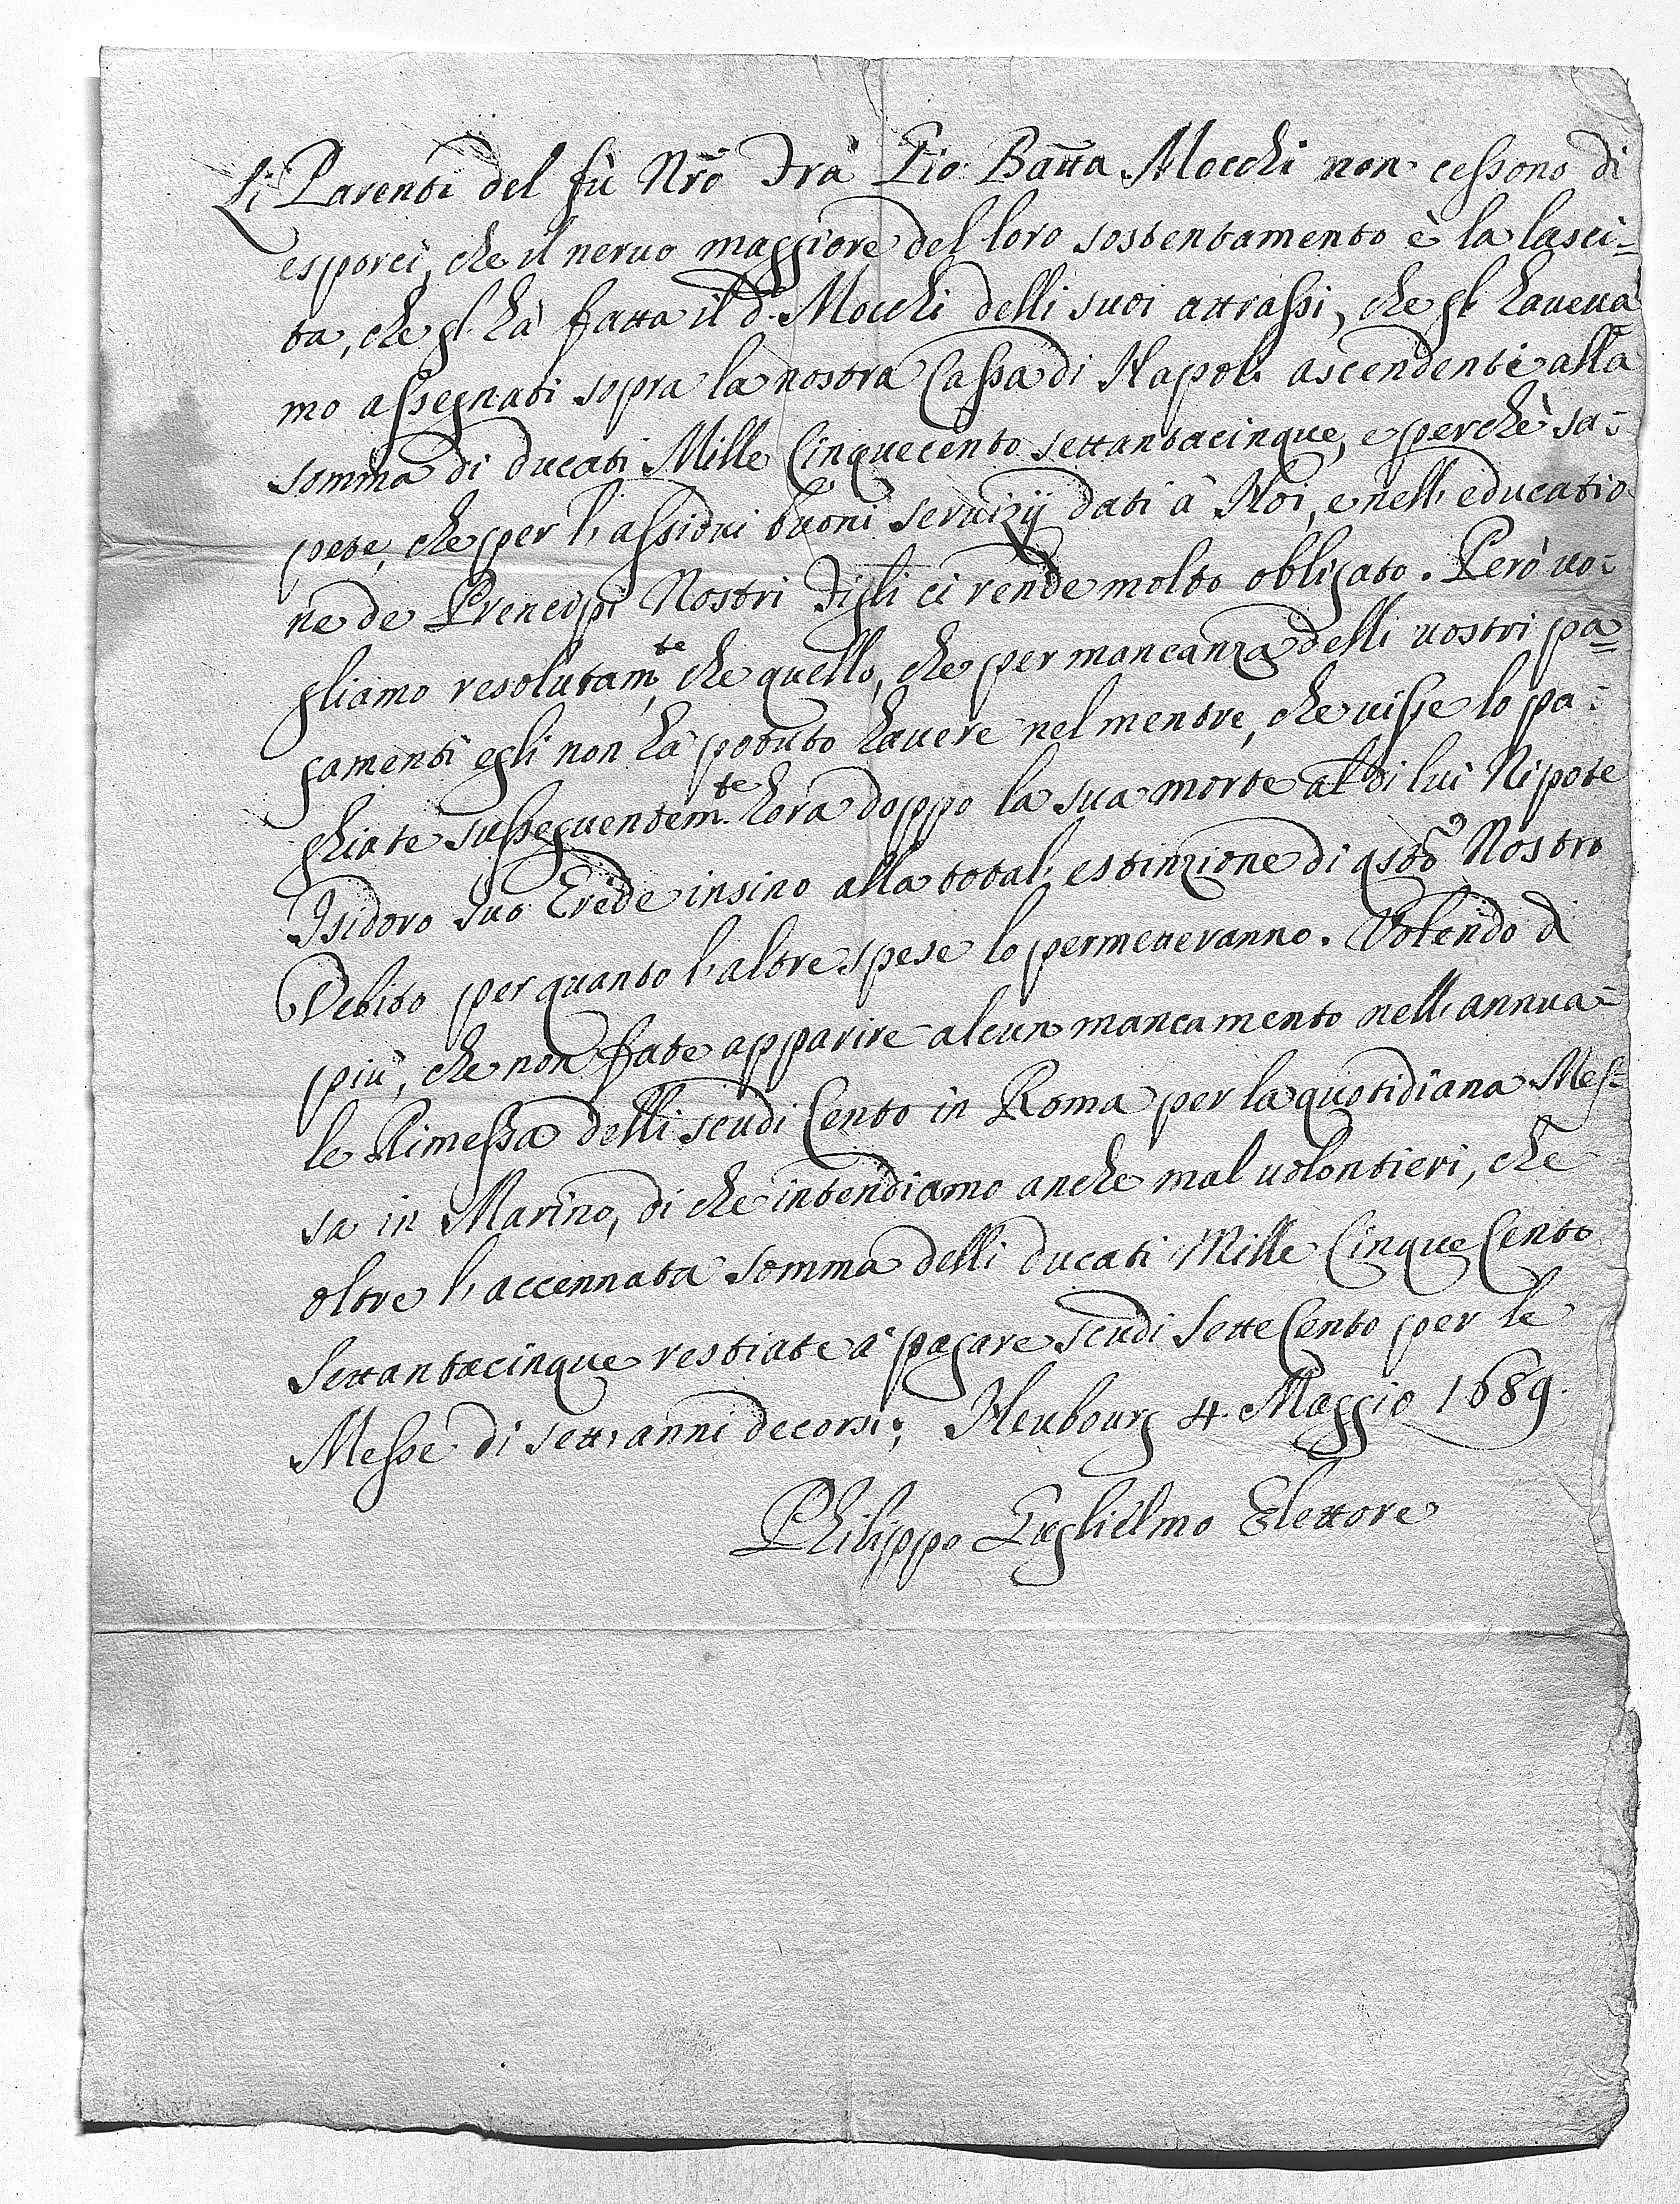 Li Parenti del fù Nrõ Frà Gio: Batta Mocchi non cessono di
esporci, che il neruo maggiore del loro sostentamento è la lasci-
ta, che gl' hà fatta il d.º Mocchi delli suoi attrassi, che gl' haueua
mo assegnati sopra la nostra Cassa di Napoli ascendenti alla
somma di ducati Mille Cinquecento settantacinque, e perchè sa-
pete, che per l'assidui buoni seruizij dati à Noi, e nell'educatio
ne de Prencipi Nostri Figli ci rende molto obligato. Però uo-
gliamo resolutam.te, che quello, che per mancanza delli uostri pa=
gamenti egli non hà potuto hauere nel mentre, che uisse lo pa-
ghiate susseguentem.te hora doppo la sua morte al di lui Nipote
Isidoro suo Erede insino alla total' estinzione di qsto Nostro
Debito per quanto l'altre spese lo permetteranno. Volendo di
più, che non fate apparire alcun mancamento nell'annua-
le Rimessa delli scudi Cento in Roma per la quotidiana Mes-
sa in Marino, di che intendiamo anche mal uolontieri, che
oltre l'accennata somma delli ducati Mille Cinque Cento
Settantacinque restiate à pagare scudi Sette Cento per le
Messe di sett' anni decorsi; Neubourg 4. Maggio 1689.
Philippo Guglielmo Elettore